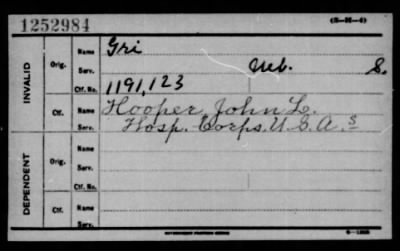 1252984
(3-M-4)
INVALID
Orig.
Name
Gri
Serv.
Neb. S.
Ctf. No.
1191,123
Ctf.
Name
Hooper, John L.
Serv.
Hosp. Corps. U.S.A. s
DEPENDENT
Orig.
Name
Serv.
Ctf. No.
Ctf.
Name
Serv.